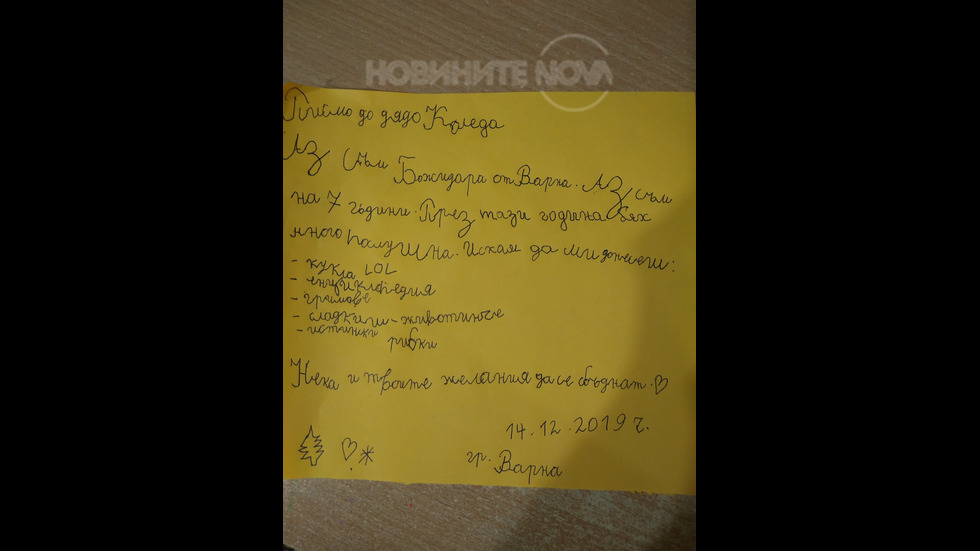 НОВИНИТЕ NOVA
Писмо до дядо Коледа
Аз съм Божидара от Варна. Аз съм
на 7 гьдини. През тази година бях
много послушна. Искам да ми донесеш:
- кукла LOL
- енциклопедия
- гримове
- сладкиши - животинче
- истински рибки
Нека и твоите желания да се сбъднат. ♡
14.12.2019 г.
гр. Варна